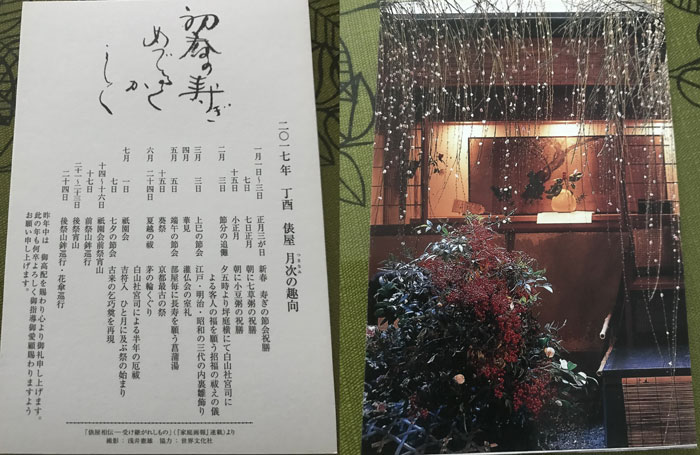 初春の寿ぎ
めでたく
かしく
二〇一七年 丁酉 俵屋 月次の趣向
つきなみ
一月一日～三日 正月三が日 新春 寿ぎの節会祝膳
七日 七日正月 朝に七草粥の祝膳
十五日 小正月 朝に小豆粥の祝膳
二月 三日 節分の追儺 夕五時より坪庭横にて白山社宮司に
よる客人の福を願う招福の祓えの儀
三月 三日 上巳の節会 江戸・明治・昭和の三代の内裏雛飾り
四月 華見 灌仏会の室礼
五月 五日 端午の節会 部屋毎に長寿を願う菖蒲湯
十五日 葵祭 京都最古の祭
六月 二十四日 夏越の祓 茅の輪くぐり
白山社宮司による半年の厄祓
七月 一日 祇園会 吉符入 ひと月に及ぶ祭の始まり
七日 七夕の節会 古来の乞巧奠を再現
十四～十六日 祇園会前祭宵山
十七日 前祭山鉾巡行
二十一～二十三日 後祭宵山
二十四日 後祭山鉾巡行・花傘巡行
昨年中は 御高配を賜わり心より御礼申し上げます。
此の年も何卒よろしく御指導御愛顧賜わりますよう
お願い申し上げます。
『俵屋相伝―受け継がれしもの』（『家庭画報』連載）より
撮影：浅井憲雄 協力：世界文化社